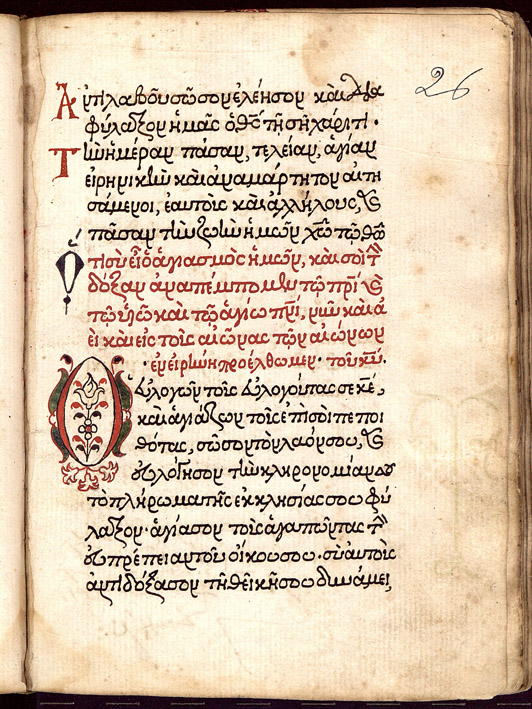 26
Ἀντιλαβοῦ σῶσον ἐλέησον καὶ δια
φύλαξον ἡμᾶς ὁ θς τῇ σῇ χάριτι·
Τὴν ἡμέραν πᾶσαν, τελείαν, ἁγίαν
εἰρηνικὴν καὶ ἀναμάρτητον αἰτη
σάμενοι, ἑαυτοὺς καὶ ἀλλήλους, καὶ
πᾶσαν τὴν ζωὴν ἡμῶν χῶ τῶ θῶ
Ὅτι σὺ εἶ ὁ ἁγιασμὸς ἡμῶν, καὶ σοὶ τὴν
δόξαν ἀναπέμπομεν τῶ πρὶ καὶ
τῶ υἱῶ καὶ τῶ ἁγίω πνι, νῦν καὶ ἀ
εὶ καὶ εἰς τοὺς αἰῶνας τῶν αἰώνων
·ἐν εἰρήνη προέλθωμεν· τοῦ κυ·
Ὁ εὐλογῶν τοὺς εὐλογοῦντας σε κε,
καὶ ἁγιάζων τοὺς ἐπὶ σοὶ πεποι
θότας, σῶσον τὸν λαόν σου, καὶ
εὐλόγησον τὴν κληρονομίαν σου
τὸ πλήρωμα τῆς ἐκκλησίας σου φύ
λαξον· ἁγίασον τοὺς ἀγαπῶντας τὴν
εὐπρέπειαν τοῦ οἴκου σου· σὺ αὐτοὺς
ἀντιδόξασον τῇ θεϊκῇ σου δυνάμει,